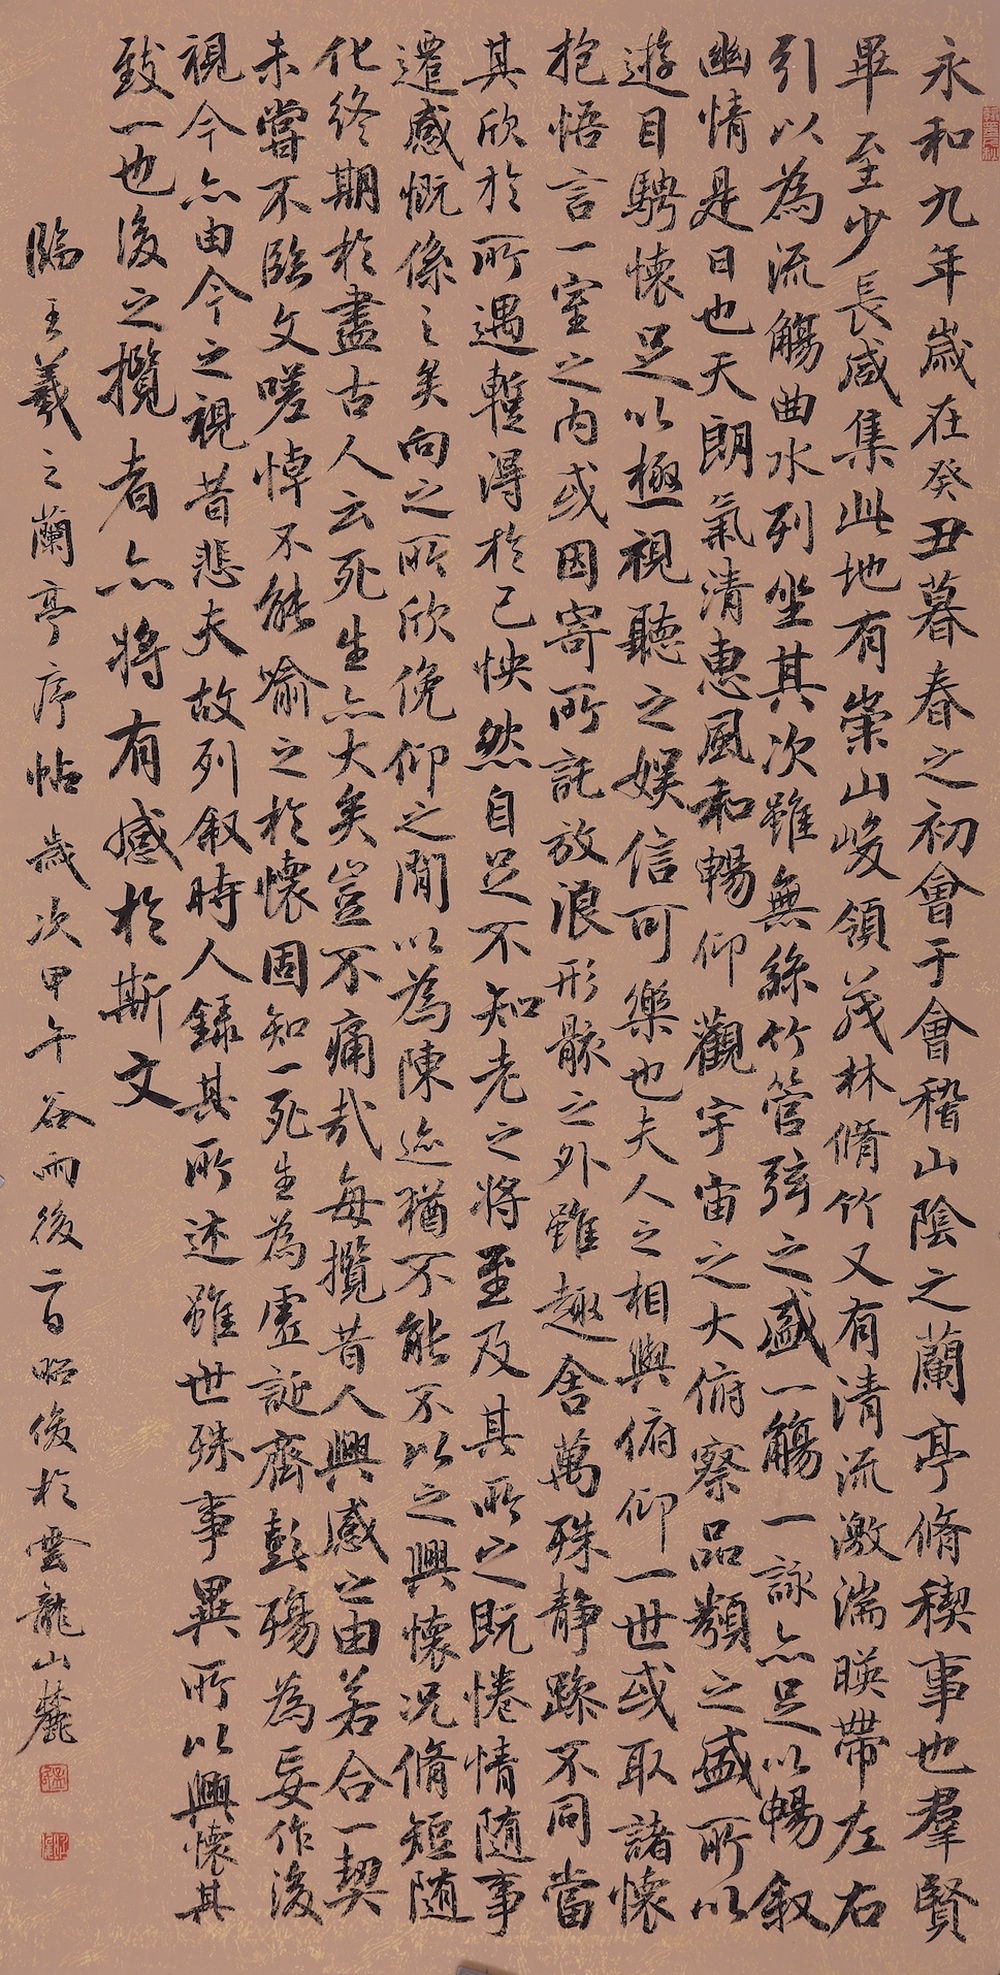 永和九年歲在癸丑暮春之初會于會稽山陰之蘭亭脩稧事也羣賢
畢至少長咸集此地有崇山峻領茂林脩竹又有清流激湍暎帶左右
引以為流觴曲水列坐其次雖無絲竹管弦之盛一觴一詠亦足以暢叙
幽情是日也天朗氣清惠風和暢仰觀宇宙之大俯察品類之盛所以
遊目騁懷足以極視聽之娛信可樂也夫人之相與俯仰一世或取諸懷
抱悟言一室之內或因寄所託放浪形骸之外雖趣舍萬殊静躁不同當
其欣於所遇暫得於己怏然自足不知老之將至及其所之既惓情隨事
遷感慨係之矣向之所欣俛仰之閒以為陳迹猶不能不以之興懷況脩短隨
化終期於盡古人云死生亦大矣豈不痛哉每攬昔人興感之由若合一契
未嘗不臨文嗟悼不能喻之於懷固知一死生為虛誕齊彭殤為妄作後
視今亦由今之視昔悲夫故列叙時人錄其所述雖世殊事異所以興懷其
致一也後之攬者亦將有感於斯文
臨王羲之蘭亭序帖 歲次甲午谷雨後二日昭俊於雲龍山麓